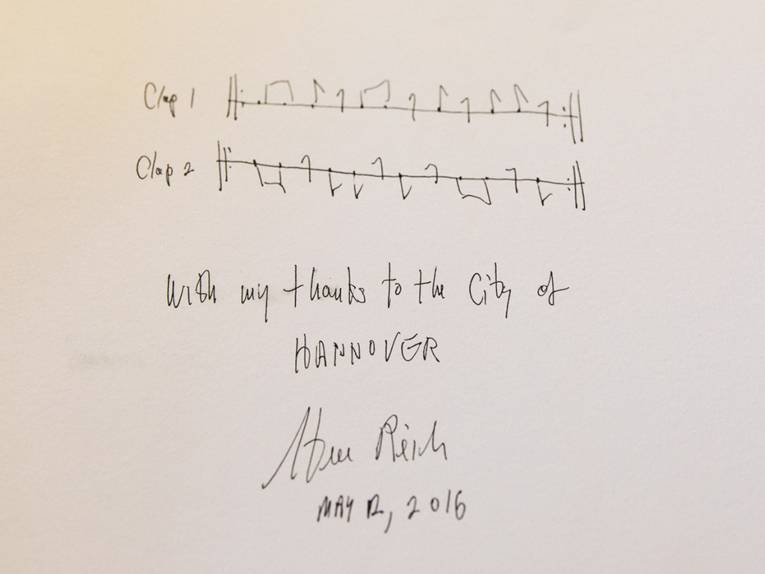 Clap 1
Clap 2
With my thanks to the City of
HANNOVER
Steve Reich
MAY 12, 2016